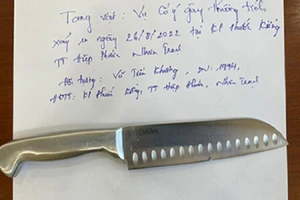 Tang vật: Vụ Cố ý gây thương tích
xảy ra ngày 26/8/2022 tại KP Phước Kiểng
TT Hiệp Phước Nhơn Trạch
Đối tượng: Võ Tiến Khương, SN: 1994,
HKTT: KP Phước Kiểng, TT Hiệp Phước, Nhơn Trạch